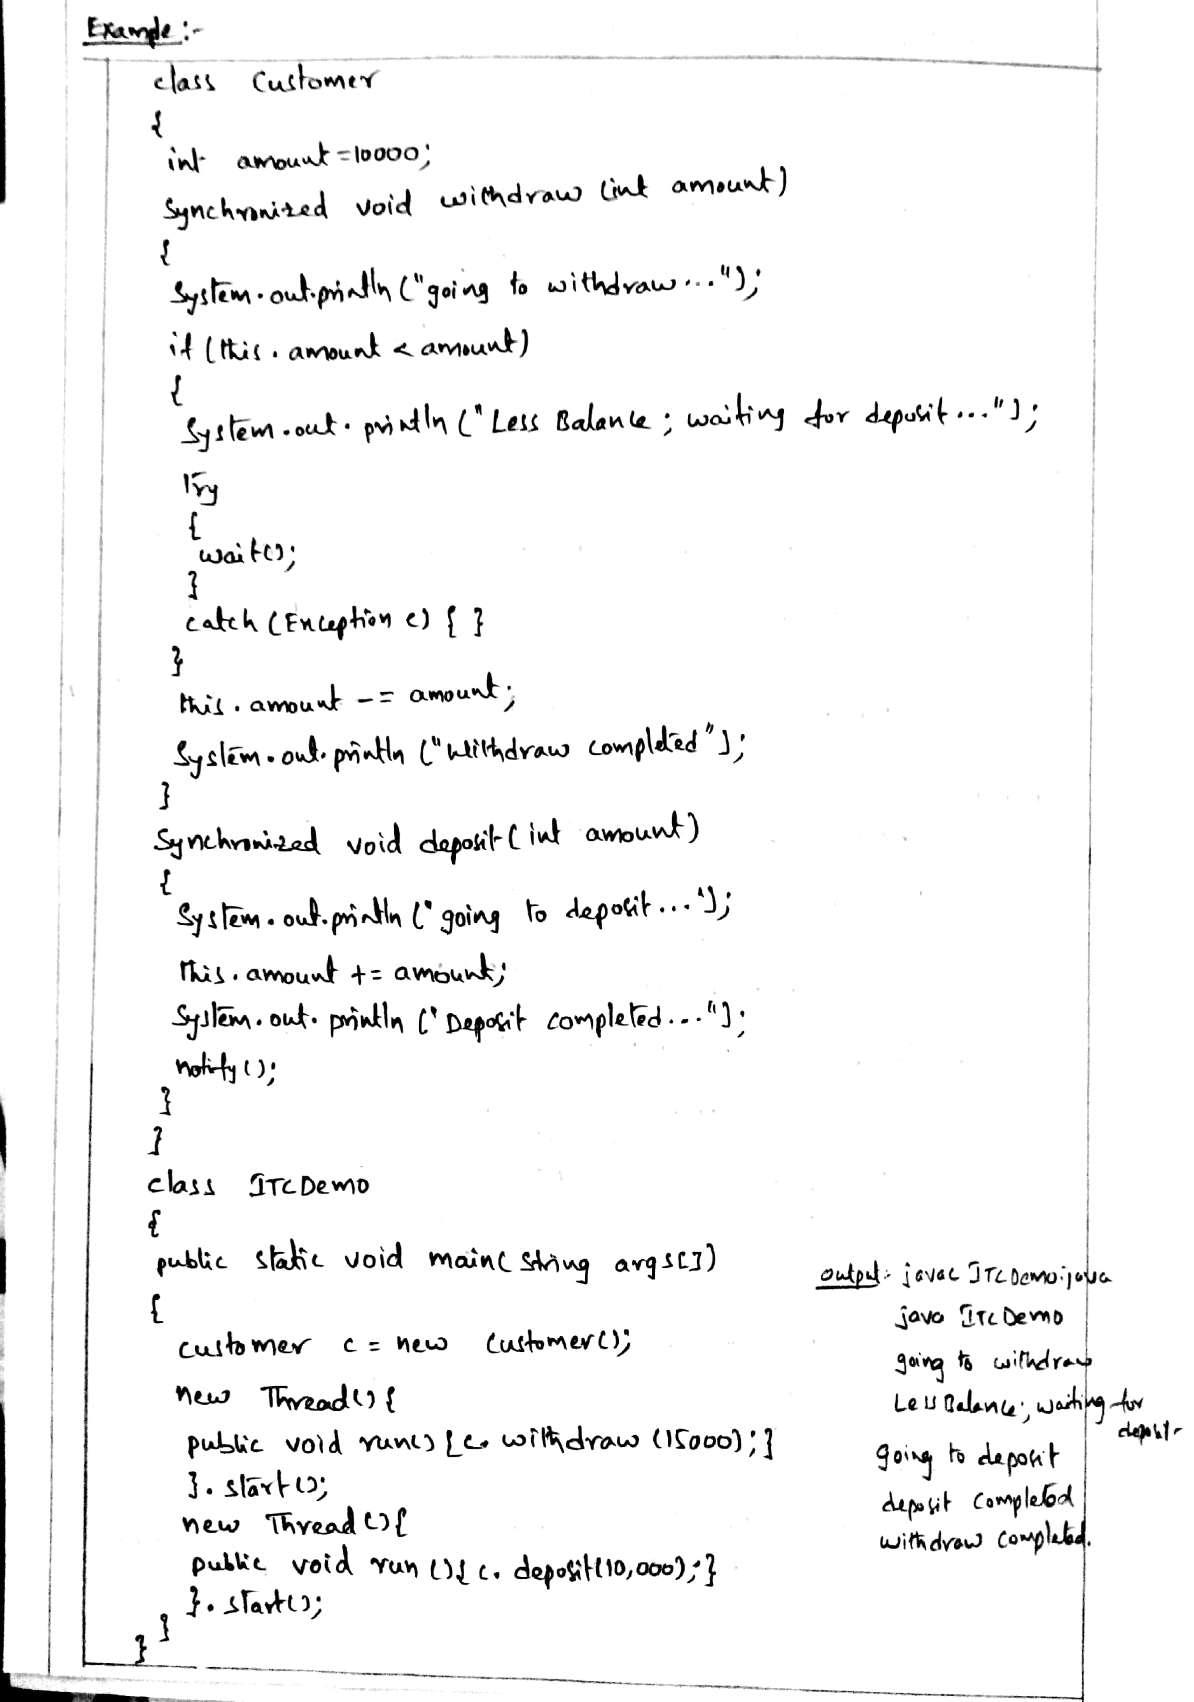 Example :-
class Customer
{
int amount=10000;
Synchronized void withdraw (int amount)
{
System.out.println ("going to withdraw...");
if (this.amount < amount)
{
System.out.println ("Less Balance; waiting for deposit...");
Try
{
wait();
}
catch (Exception e) { }
}
this.amount -= amount;
System.out.println ("Withdraw completed");
}
Synchronized void deposit(int amount)
{
System.out.println ("going to deposit...");
this.amount += amount;
System.out.println ("Deposit completed...");
notify();
}
}
class ITCDemo
{
public static void main(String args[])
{
customer c = new Customer();
new Thread(){
public void run() {c.withdraw (15000);}
}.start();
new Thread(){
public void run(){c.deposit(10,000);}
}.start();
}
}
output:- javac ITCDemo.java
java ITCDemo
going to withdraw
Less Balance; waiting for
deposit-
going to deposit
deposit completed
withdraw completed.